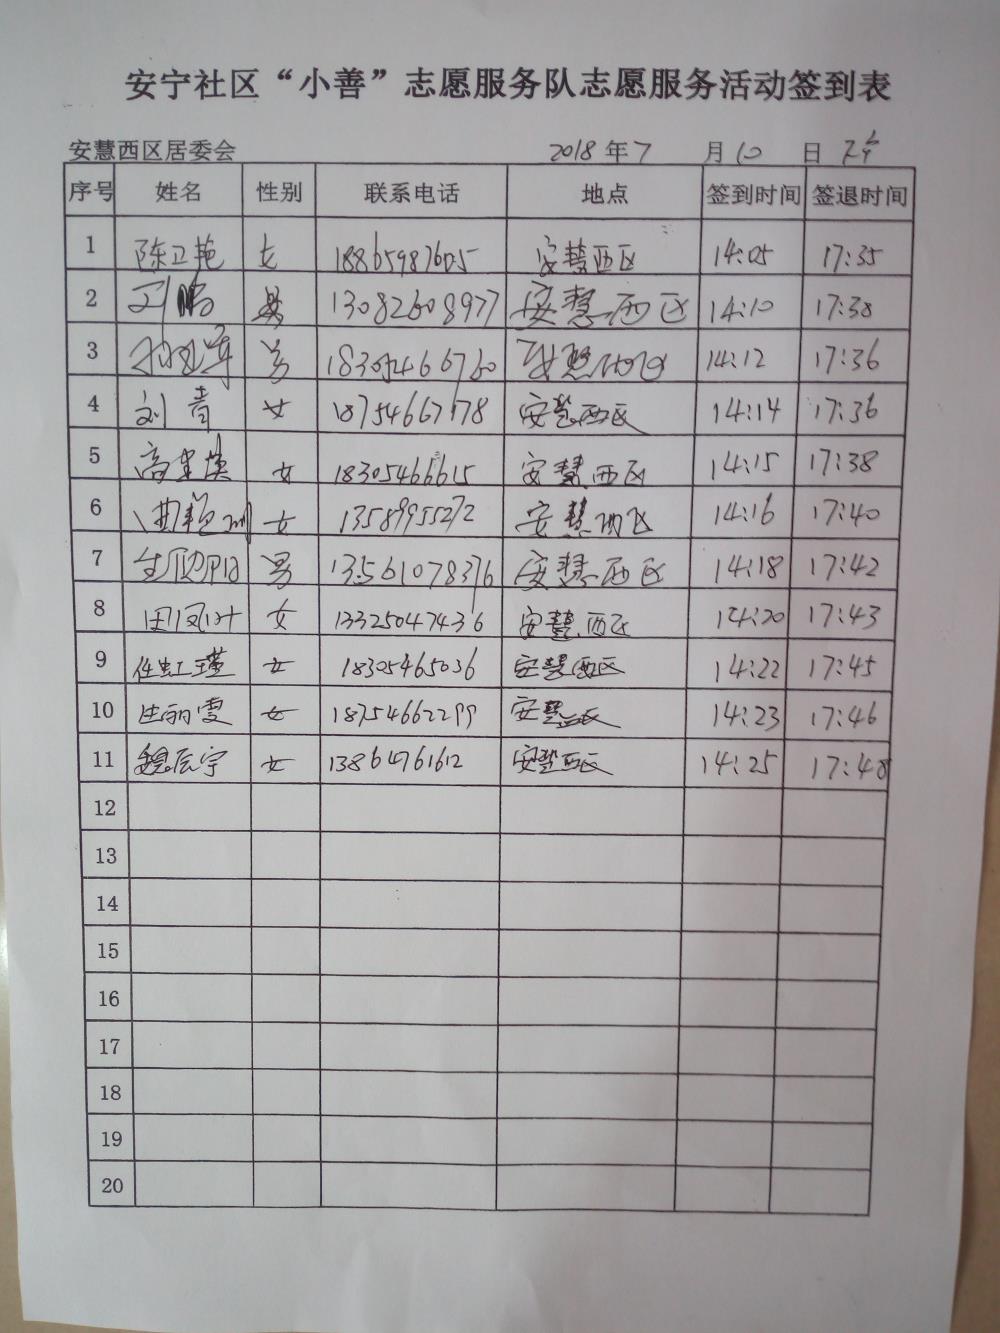 安宁社区“小善”志愿服务队志愿服务活动签到表
安慧西区居委会 2018 年 7 月 10 日 下午
序号 姓名 性别 联系电话 地点 签到时间 签退时间
1 陈卫艳 女 18865987605 安慧西区 14:05 17:35
2 刘鹏 男 13082608977 安慧西区 14:10 17:38
3 男 18305466760 安慧西区 14:12 17:36
4 刘青 女 18754667678 安慧西区 14:14 17:36
5 高建英 女 18305466615 安慧西区 14:15 17:38
6 女 13589955272 安慧西区 14:16 17:40
7 男 13561078376 安慧西区 14:18 17:42
8 田凤叶 女 13325047436 安慧西区 14:20 17:43
9 任虹瑾 女 18305465036 安慧西区 14:22 17:45
10 丽雯 女 18754662299 安慧西区 14:23 17:46
11 魏辰宇 女 13864761612 安慧西区 14:25 17:48
12
13
14
15
16
17
18
19
20